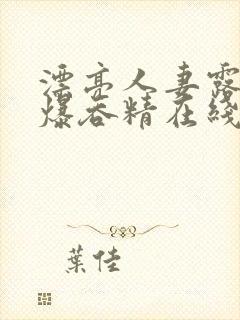 漂亮人妻露
爆吞精在线
葉佳